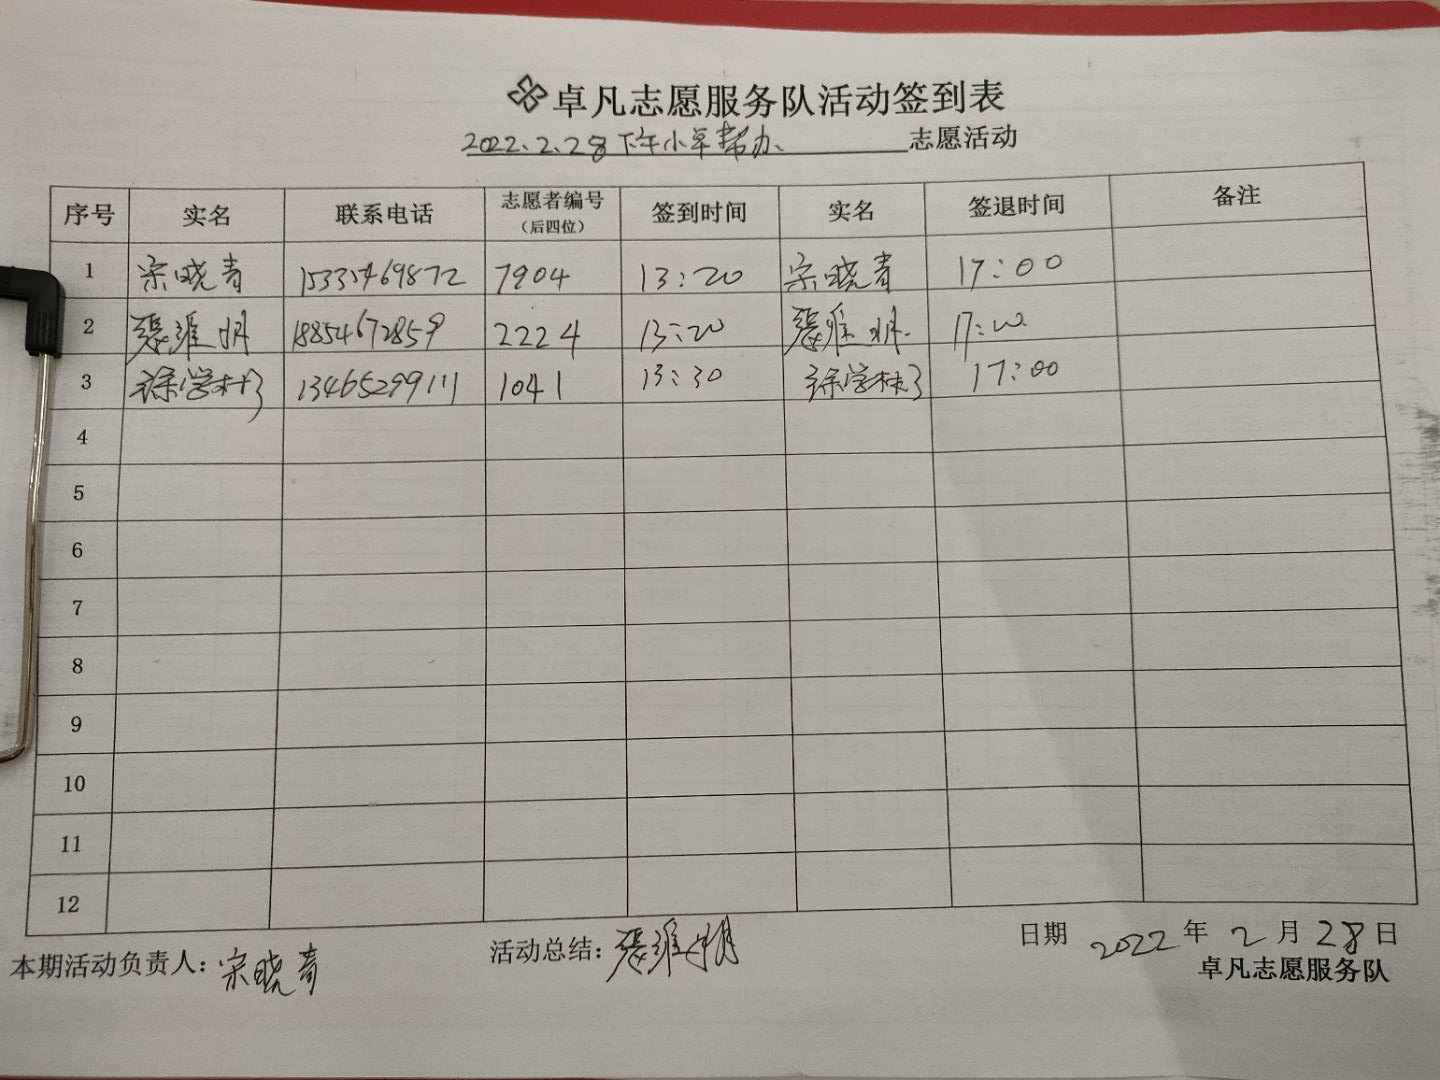 卓凡志愿服务队活动签到表
2022.2.28下午小卓帮办、志愿活动
序号 实名 联系电话 志愿者编号（后四位） 签到时间 实名 签退时间 备注
1 宗晓青 15335469872 7904 13:20 宗晓青 17:00
2 张维明 18854672859 2224 13:20 张维明 17:00
3 徐学 13465299111 1041 13:30 徐学 17:00
4
5
6
7
8
9
10
11
12
本期活动负责人：宗晓青 活动总结：张维明 日期 2022年2月28日
卓凡志愿服务队